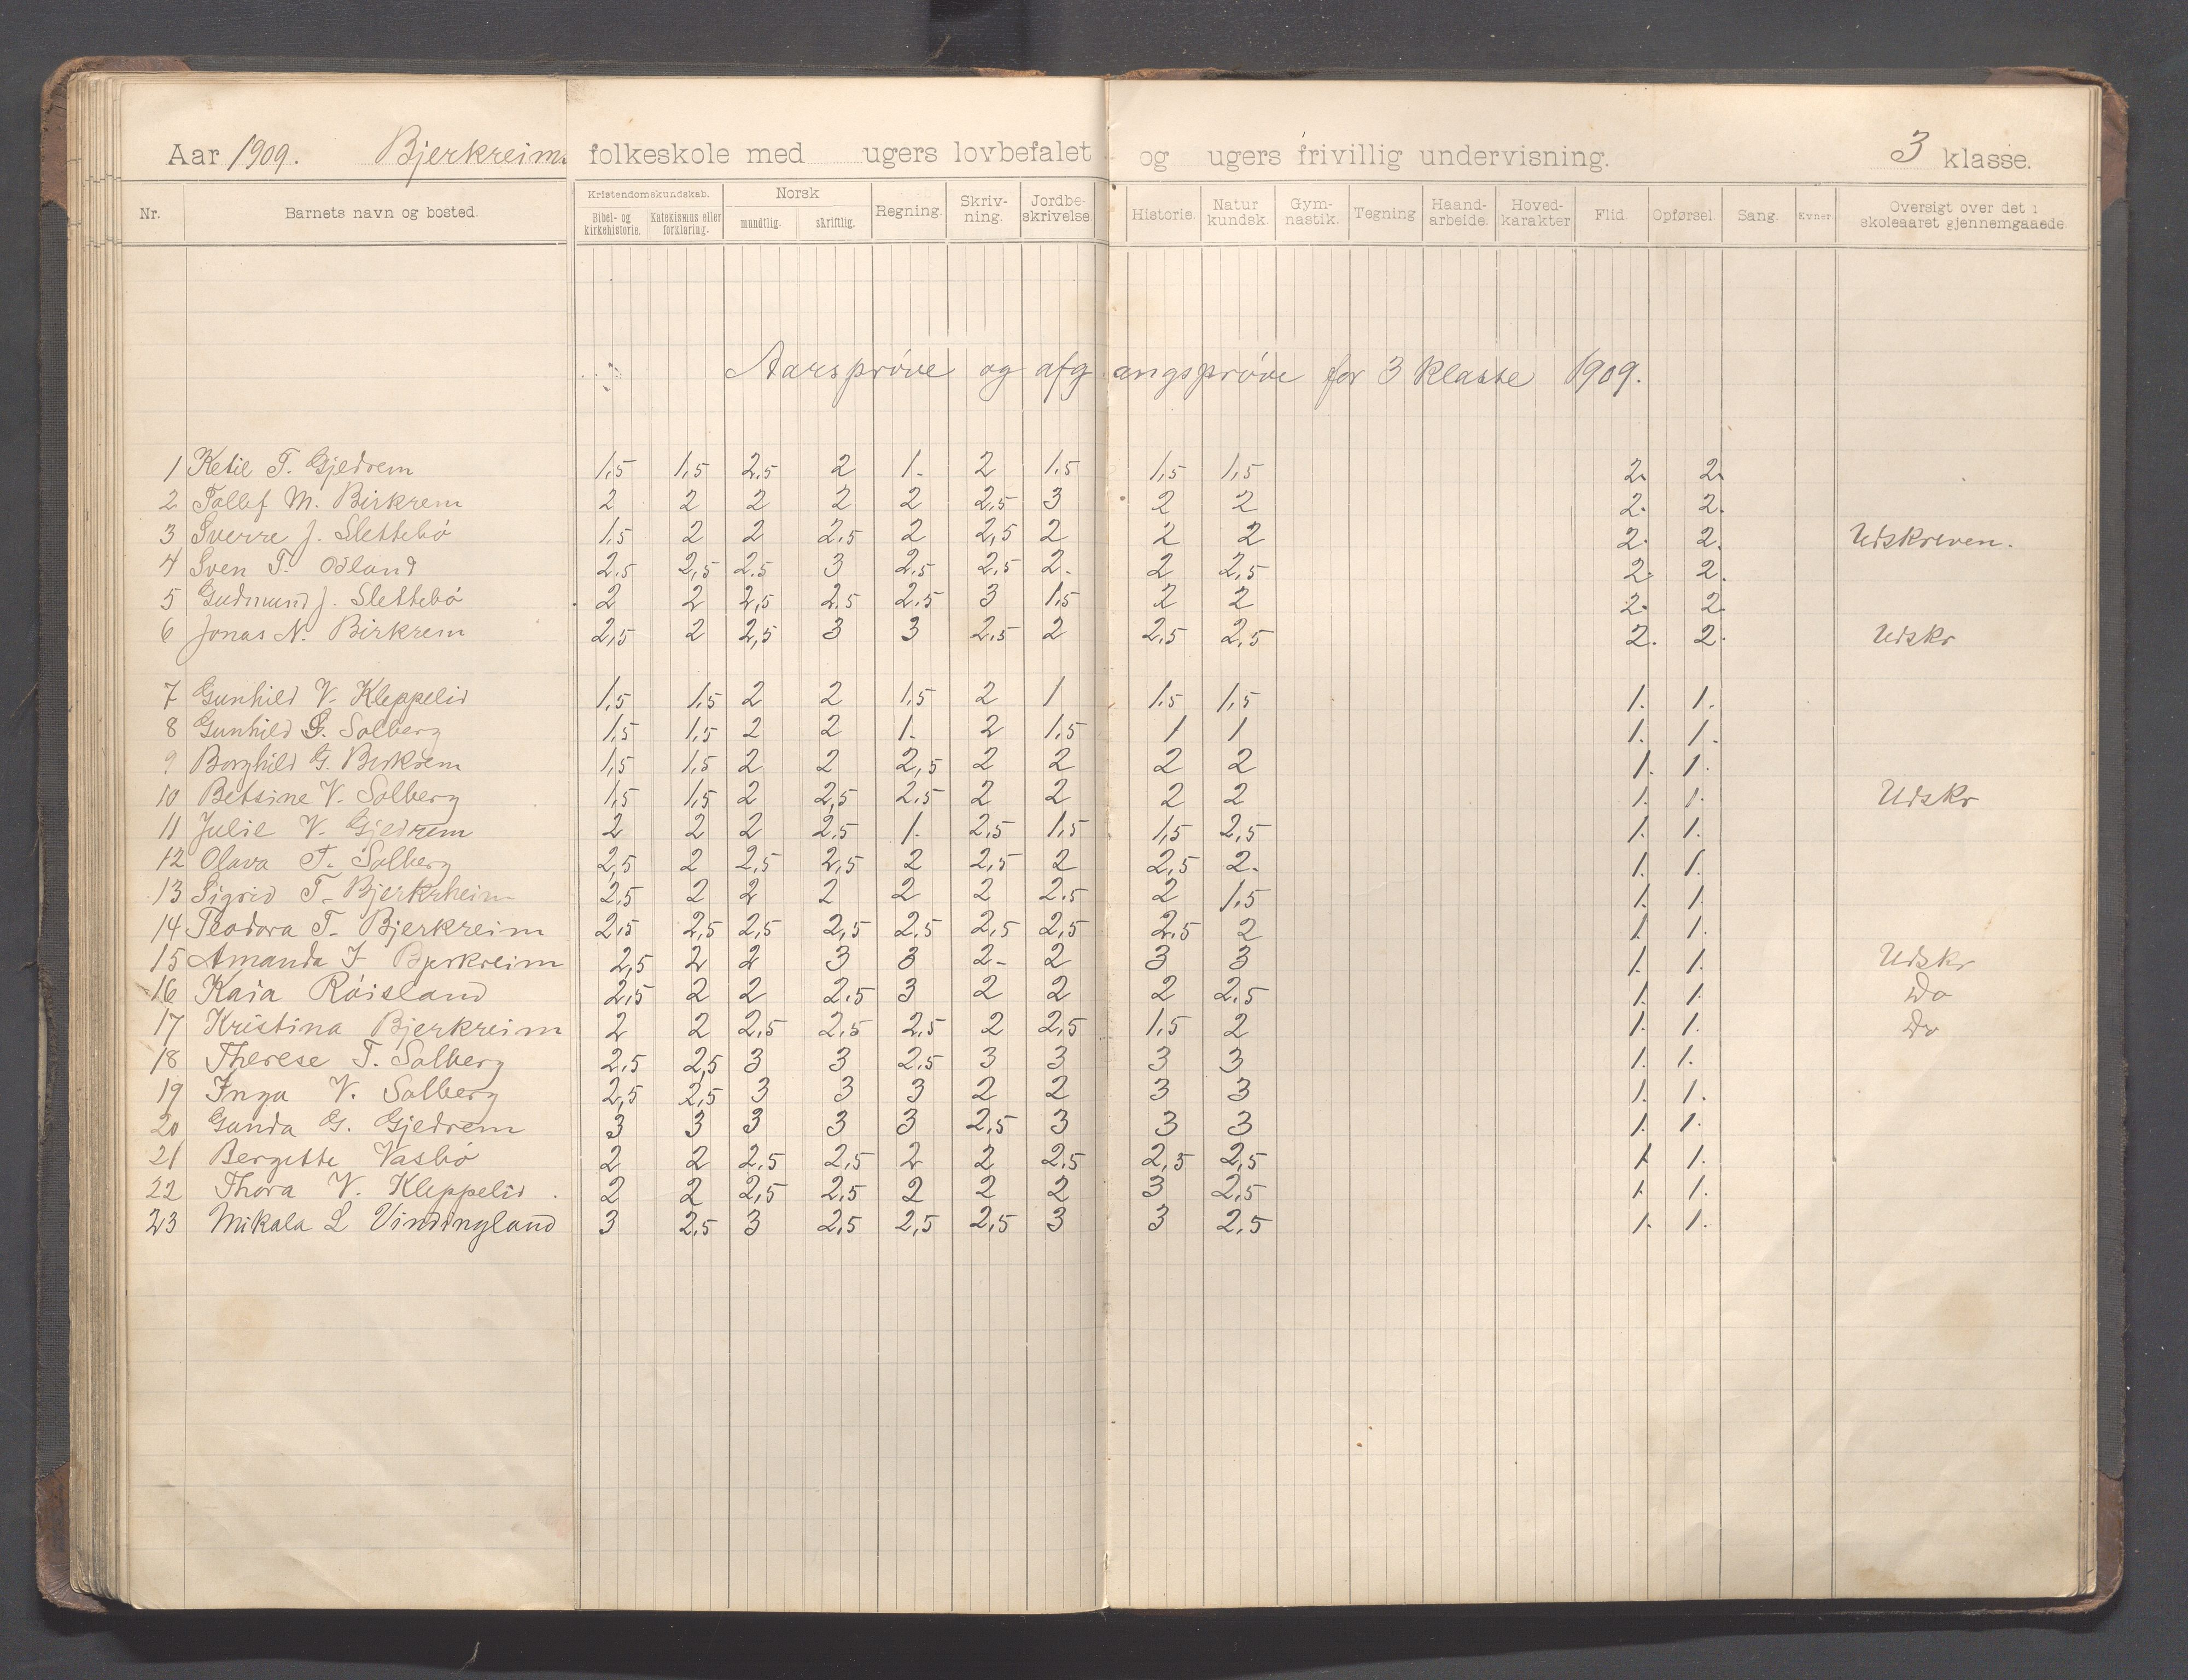 Aar 1909. Bjerkreims folkeskole med ugers lovbefalet og ugers frivillig undervisning. 3 klasse.
Nr. Barnets navn og bosted. Kristendomskundskab. Bibel- og kirkehistorie. Katekismus eller forklaring. Norsk mundtlig. skriftlig. Regning. Skriv-ning. Jordbe-skrivelse. Historie. Natur kundsk. Gym-nastik. Tegning Haand-arbeide. Hoved-karakter Flid. Opførsel. Sang. Evner. Oversigt over det i skoleaaret gjennemgaaede.
Aarsprøve og afgangsprøve for 3 klasse 1909.
1 Ketil T. Gjedrem 1,5 1,5 2,5 2 1. 2 1,5 1,5 1,5 2. 2.
2 Tollef M. Birkrem 2 2 2 2 2 2,5 3 2 2 2. 2.
3 Sverre J. Slettebö 1,5 2 2 2,5 2 2,5 2 2 2 2. 2. Udskreven.
4 Sven T. Odland 2,5 2,5 2,5 3 2,5 2,5 2. 2 2,5 2. 2.
5 Gudmund J. Slettebö 2 2 2,5 2,5 2,5 3 1,5 2 2 2. 2.
6 Jonas N. Birkrem 2,5 2 2,5 3 3 2,5 2 2,5 2,5 2. 2. Udskr
7 Gunhild V. Kleppelid 1,5 1,5 2 2 1,5 2 1 1,5 1,5 1. 1.
8 Gunhild G. Solberg 1,5 1,5 2 2 1. 2 1,5 1 1 1. 1.
9 Borghild G. Birkrem 1,5 1,5 2 2 2,5 2 2 2 2 1. 1.
10 Betsine V. Solberg 1,5 1,5 2 2,5 2,5 2 2 2 2 1. 1. Udskr
11 Julie V. Gjedrem 2 2 2 2,5 1. 2,5 1,5 1,5 2,5 1. 1.
12 Olava T. Solberg 2,5 2 2,5 2,5 2 2,5 2 2,5 2. 1. 1.
13 Sigrid T. Bjerkrheim 2,5 2 2 2 2 2 2,5 2 1,5 1. 1
14 Teodora T. Bjerkreim 2,5 2,5 2,5 2,5 2,5 2,5 2,5 2,5 2 1. 1.
15 Amanda J Bjerkreim 2,5 2 2 3 3 2- 2 3 3 1. 1. Udskr
16 Kaia Röisland 2,5 2 2 2,5 3 2 2 2 2,5 1. 1 Do
17 Kristina Bjerkreim 2 2 2,5 2,5 2,5 2 2,5 1,5 2 1. 1. Do
18 Therese T. Solberg 2,5 2,5 3 3 2,5 3 3 3 3 1. 1.
19 Inga V. Solberg 2,5 2,5 3 3 3 2 2 3 3 1. 1.
20 Gunda G. Gjedrem 3 3 3 3 3 2,5 3 3 3 1. 1.
21 Bergitte Vasbö 2 2 2,5 2,5 2 2 2,5 2,5 2,5 1 1.
22 Thora V. Kleppelid. 2 2 2,5 2,5 2 2 2 3 2,5 1. 1.
23 Mikala L Vindingland 3 2,5 3 2,5 2,5 2,5 3 3 2,5 1. 1.